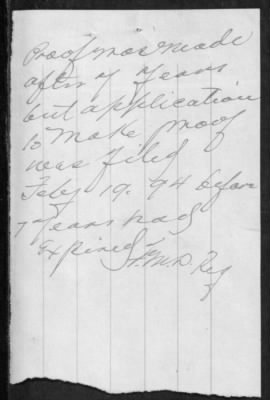 Proof was made
after 7 years
but application
to make proof
was filed
Feby 19. 94 before
7 years had
expired